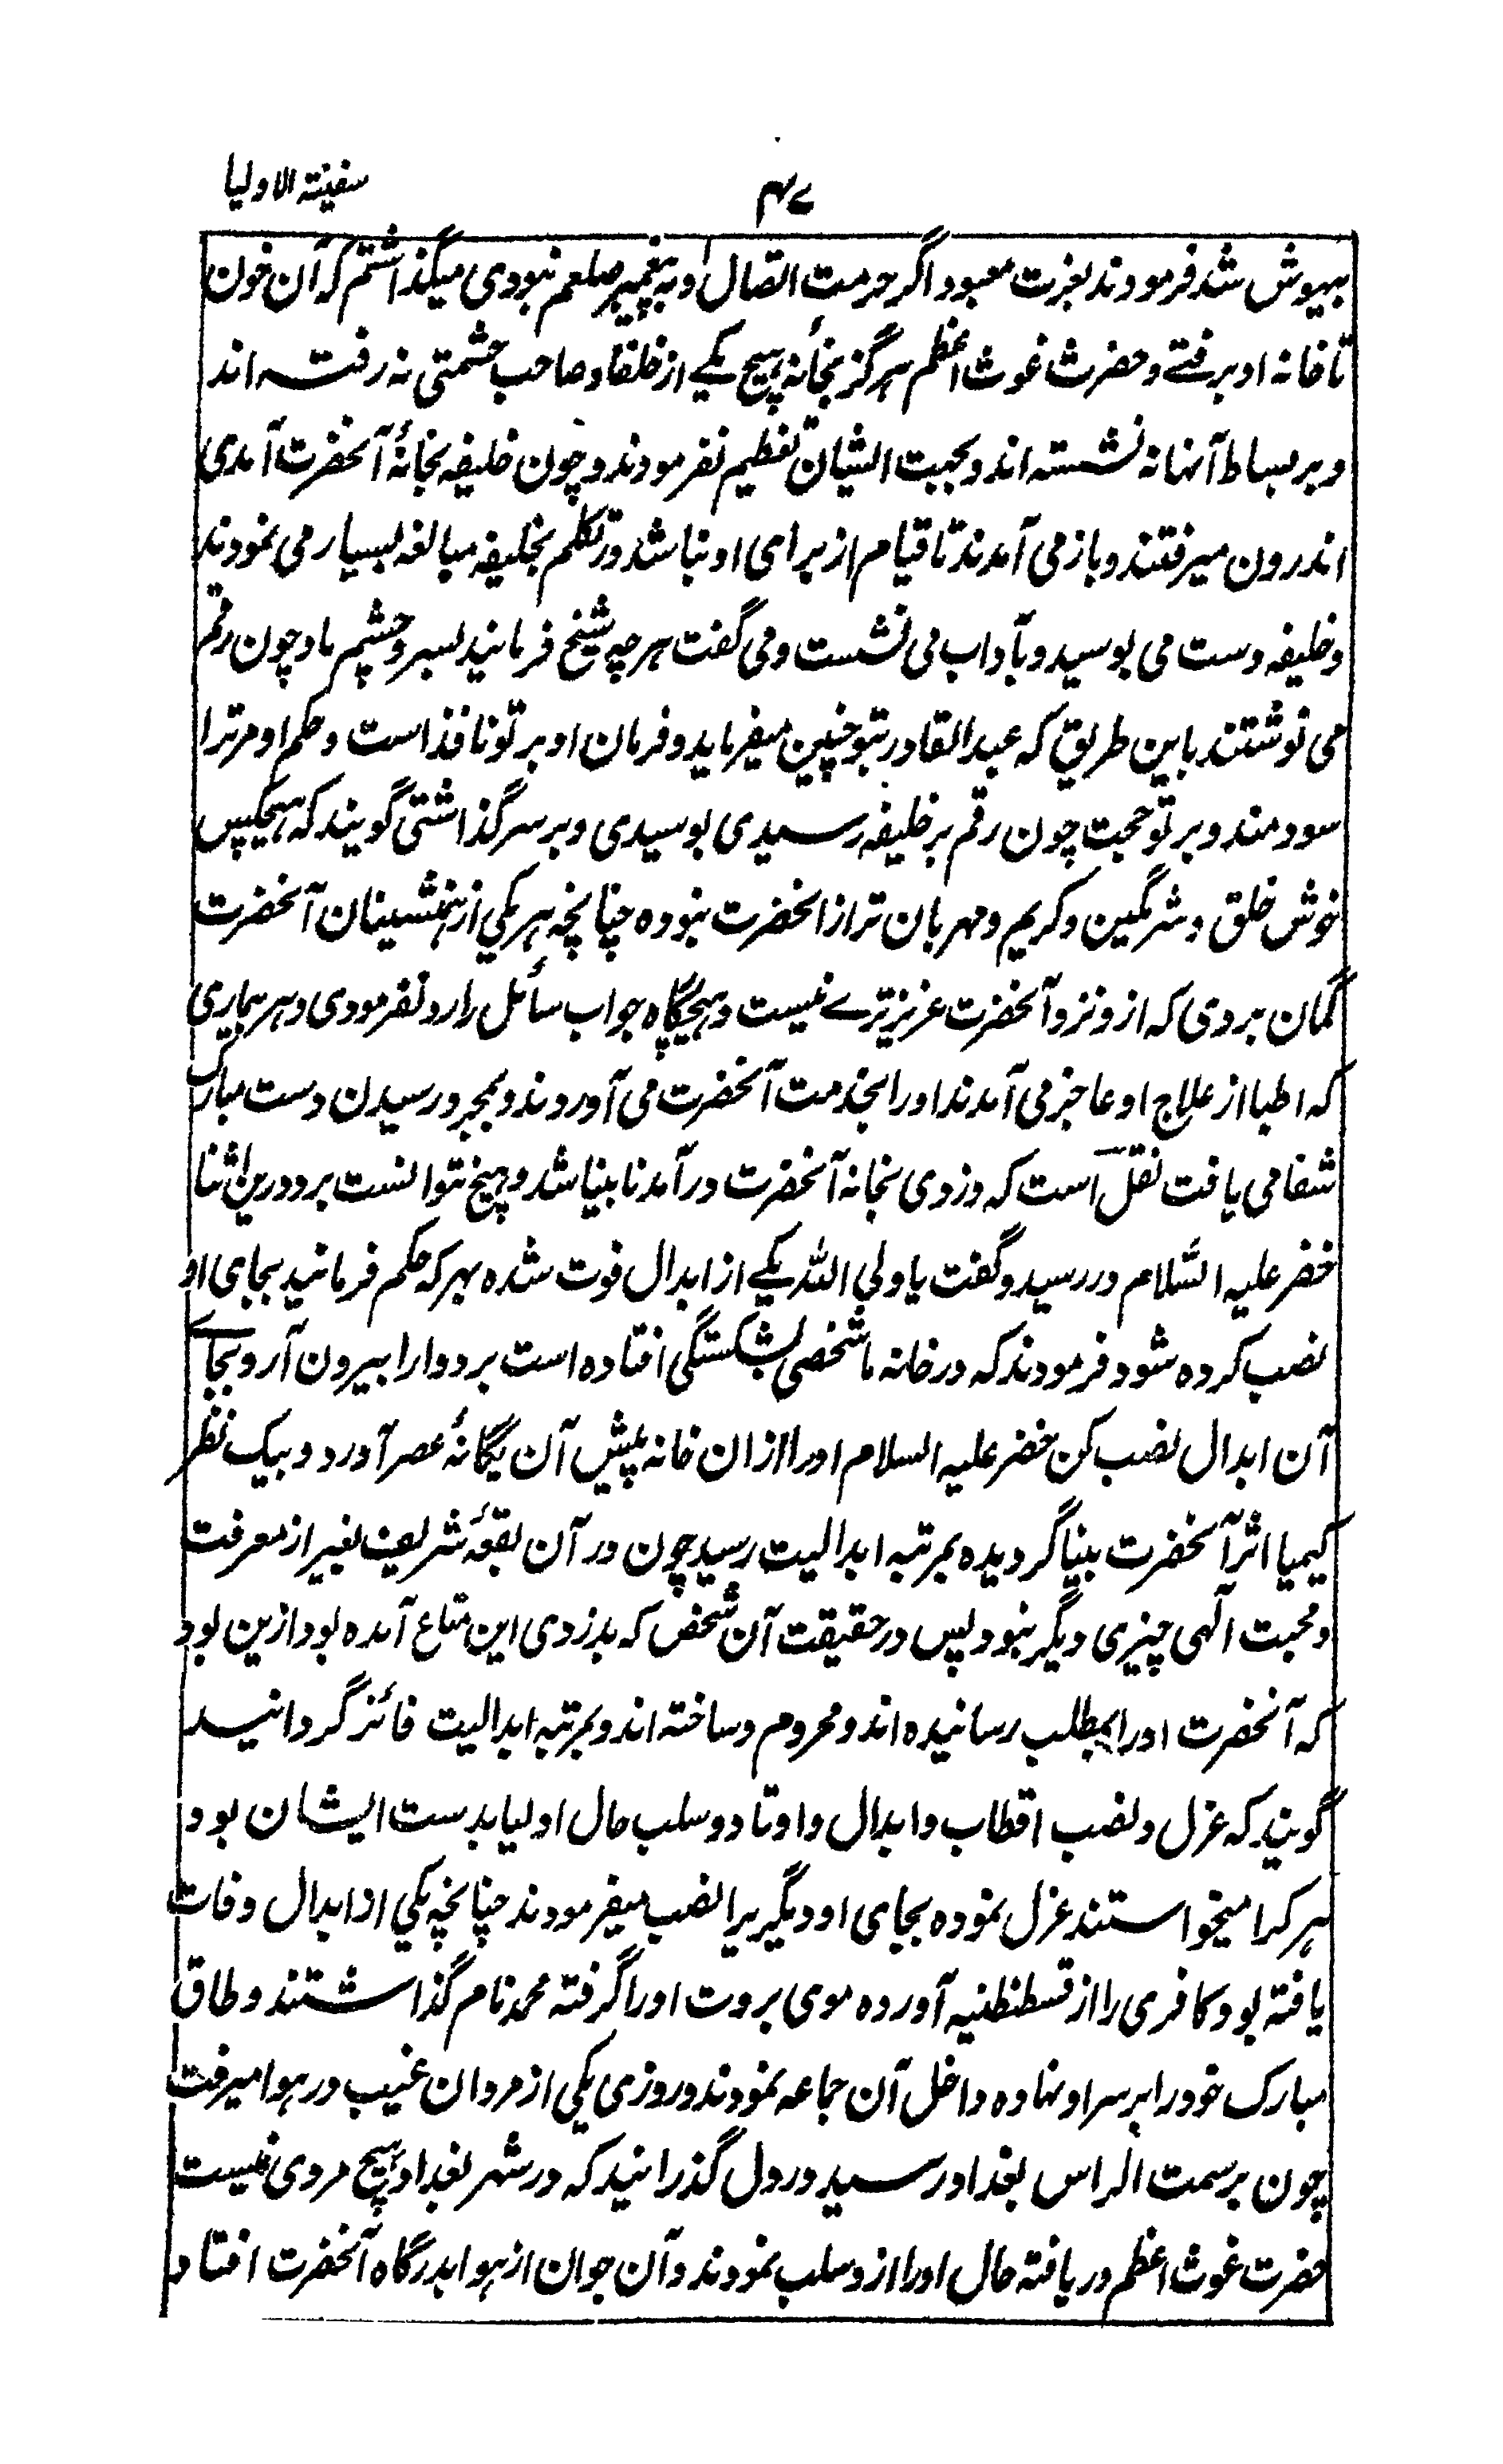 سفینۃ الاولیا
۴۷
بیهوش شد فرمودند بعزت معبود اگر حرمت اتصال او به پیغمبر صلعم نبودی میگذاشتم که آن خون
تا خانه او برفتے و حضرت غوث اعظم هرگز بخانۂ هیچ یکے از خلفا و صاحب حشمتی نه رفته اند
و بر بساط آنها نه نشسته اند و بجهت ایشان تعظیم نفرمودند و چون خلیفه بخانۂ آنحضرت آمدی
اندرون میرفتند و باز می آمدند تا قیام از برای او نباشد و در تکلم بخلیفه مبالغه بسیار می نمودند
و خلیفه دست می بوسید و بآداب می نشست و می گفت هرچه شیخ فرمایند بسر و چشم ما و چون رقم
می نوشتند باین طریق که عبدالقادر بتو چنین میفرماید و فرمان او بر تو نافذ است و حکم او مر ترا
سودمند و بر تو حجت چون رقم بر خلیفه رسیدی بوسیدی و بر سر گذاشتی گویند که هیچکس
خوش خلق و شرمگین و کریم و مهربان تر از آنحضرت نبوده چنانچه هر یکی از همنشینان آنحضرت
گمان بردی که ازو نزد آنحضرت عزیز ترے نیست و هیچگاه جواب سائل را رد نفرمودی و هر بیماری
که اطبا از علاج او عاجز می آمدند او را بخدمت آنحضرت می آوردند و بمجرد رسیدن دست مبارک
شفا می یافت نقل است که دزدی بخانه آنحضرت در آمد نابینا شد و هیچ نتوانست برد درین اثنا
خضر علیه السّلام در رسید و گفت یا ولی الله یکے از ابدال فوت شده بهر که حکم فرمائید بجای او
نصب کرده شود فرمودند که در خانه ما شخصی بشکستگی افتاده است برو و او را بیرون آر و بجاے
آن ابدال نصب کن خضر علیه السلام او را ازان خانه پیش آن یگانۂ عصر آورد و بیک نظر
کیمیا اثر آنحضرت بینا گردیده بمرتبه ابدالیت رسید چون در آن بقعۂ شریف بغیر از معرفت
و محبت آلهی چیزی دیگر نبود پس در حقیقت آن شخص که بدزدی این متاع آمده بود ازین بود
که آنحضرت او را بمطلب رسانیده اند و محروم و ساخته اند و بمرتبه ابدالیت فائز گردانید
گویند که عزل و نصب اقطاب و ابدال و اوتاد و سلب حال اولیا بدست ایشان بود
هر کرا میخواستند عزل نموده بجای او دیگریرا نصب میفرمودند چنانچه یکی از ابدال وفات
یافته بود کافری را از قسطنطنیه آورده موی بروت او را گرفته محمد نام گذاشتند و طاق
مبارک خود را بر سر او نهاده داخل آن جماعه نمودند و روزی یکی از مردان غیب در هوا میرفت
چون بر سمت الراس بغداد رسید در دل گذرانید که در شهر بغداد هیچ مردی نیست
حضرت غوث اعظم دریافته حال او را ازو سلب نمودند و آن جوان از هوا بدرگاه آنحضرت افتاد